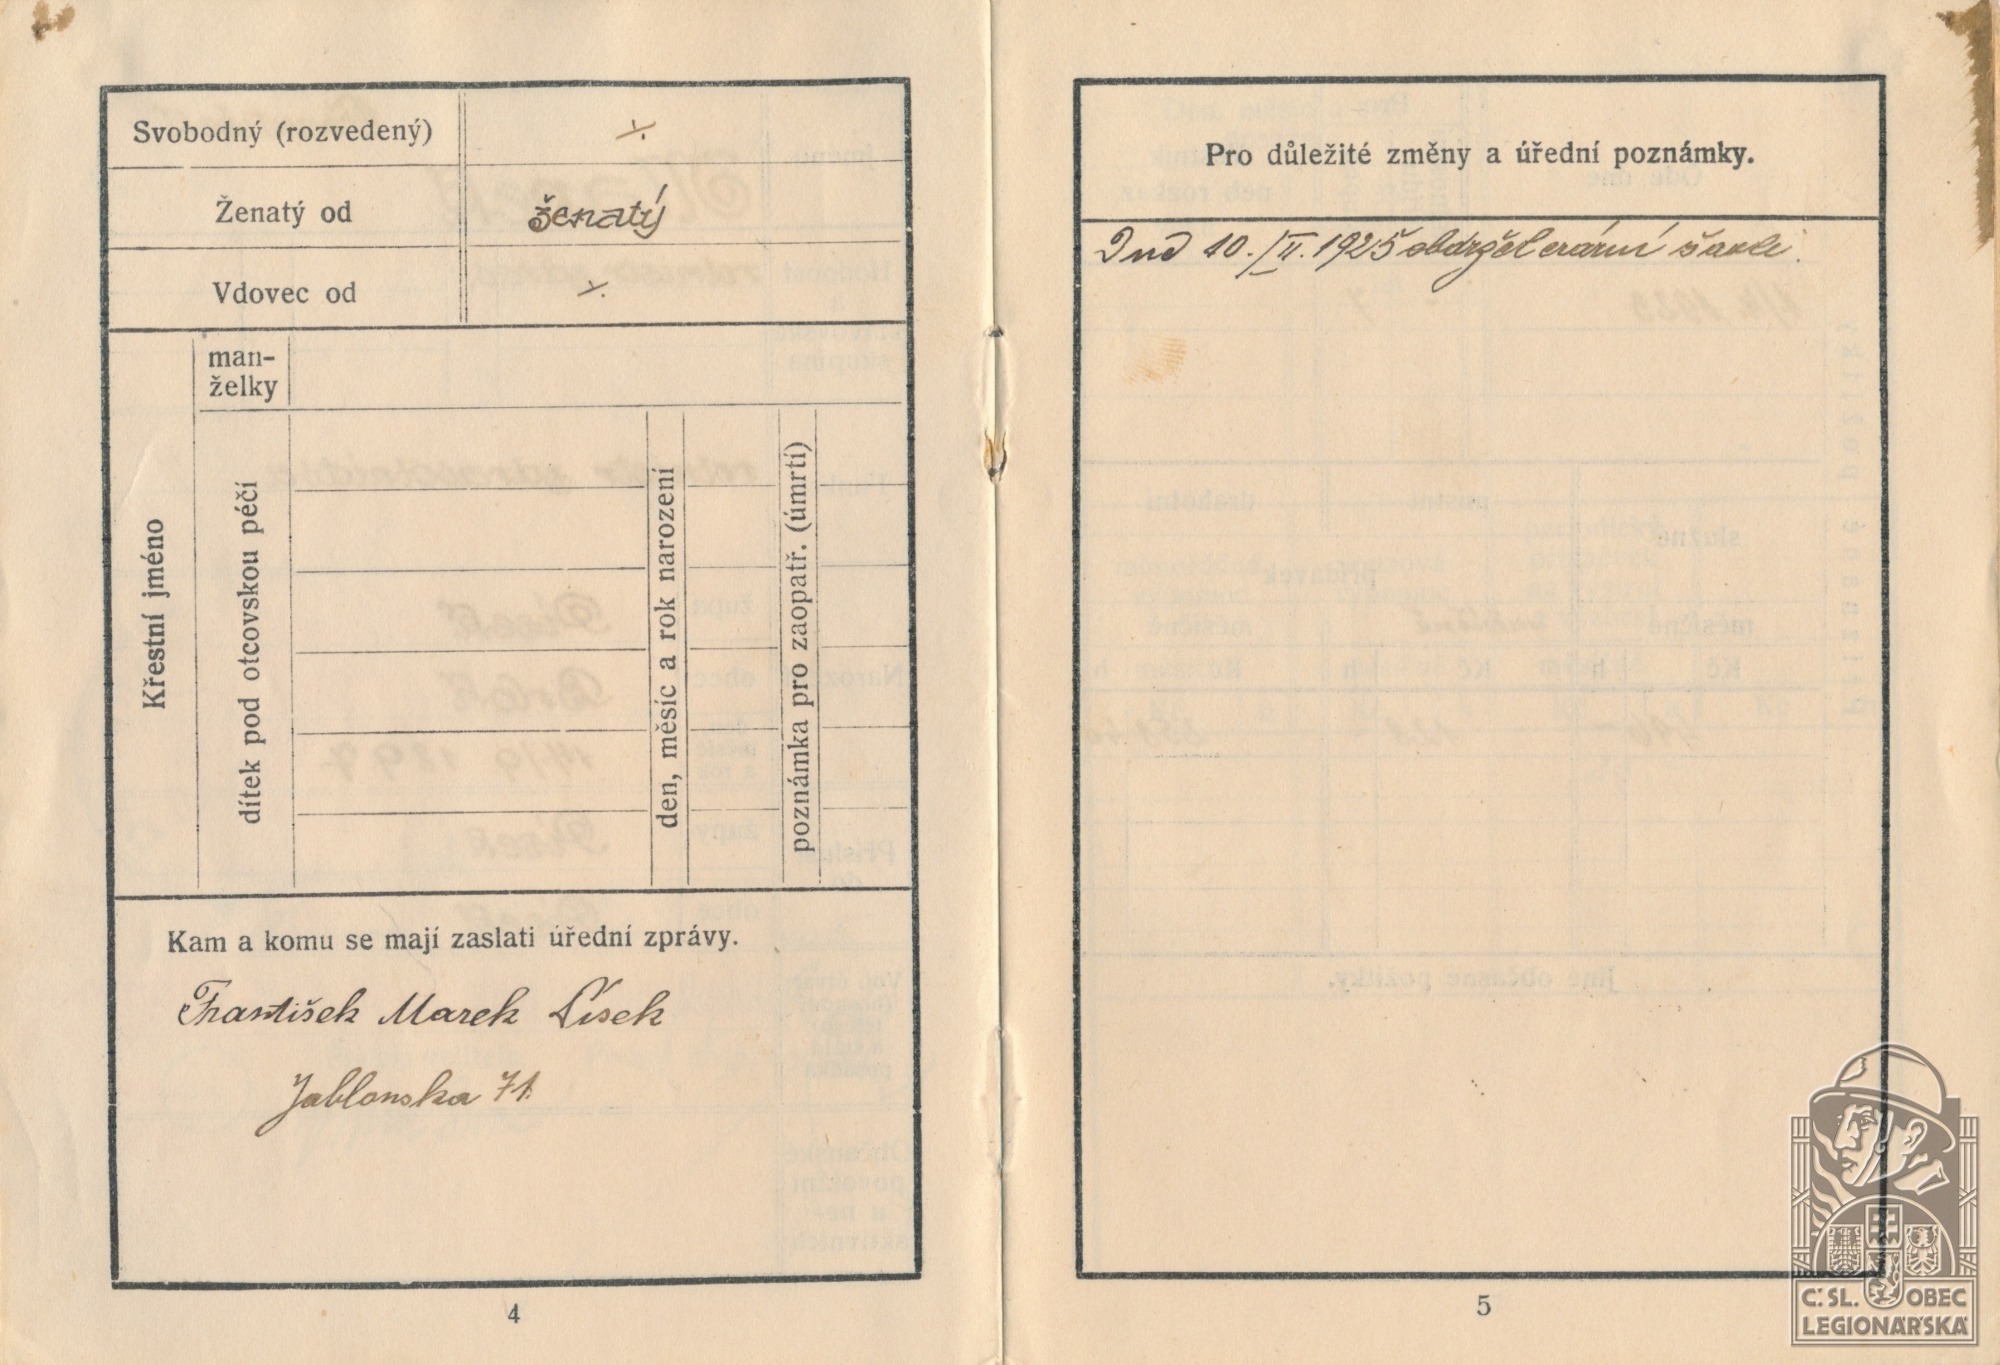 Svobodný (rozvedený)
×.
Ženatý od
ženatý
Vdovec od
×.
Křestní jméno
man-
želky
dítek pod otcovskou péčí
den, měsíc a rok narození
poznámka pro zaopatř. (úmrtí)
Kam a komu se mají zaslati úřední zprávy.
František Marek Písek
Jablonska 71.
4
Pro důležité změny a úřední poznámky.
Dne 10./II. 1925 obdržel erární šavli.
5
Č. SL. OBEC
LEGIONÁŘSKÁ